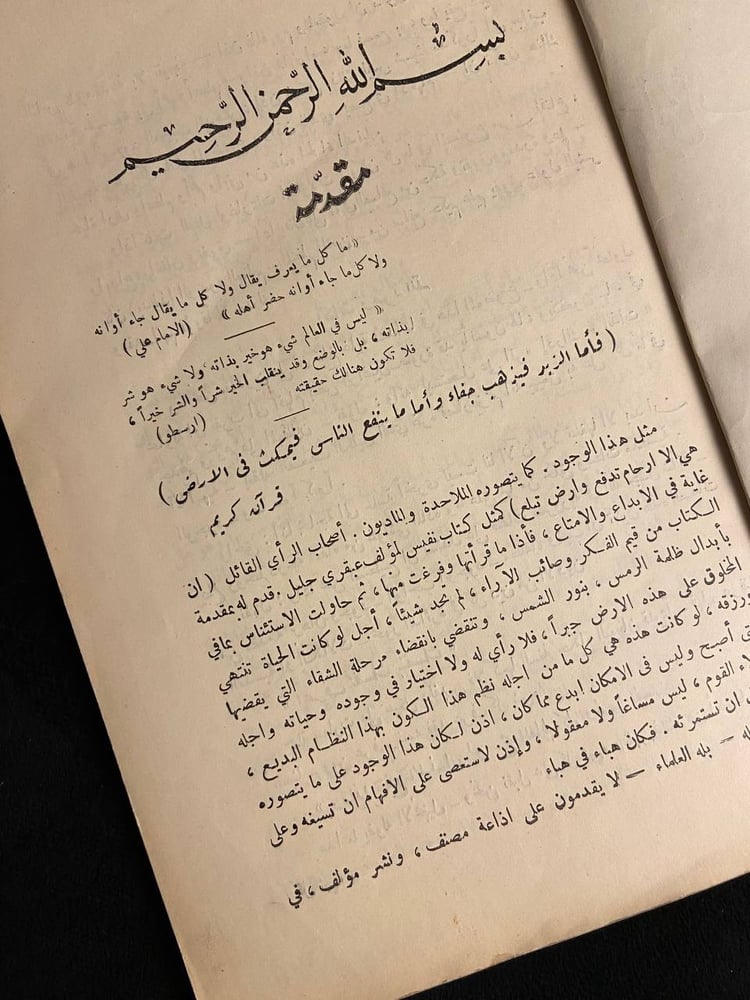 بِسْمِ اللهِ الرَّحمنِ الرَّحِيمِ
مقدّمة
« ما كل ما يعرف يقال ولا كل ما يقال جاء أوانه
ولا كل ما جاء أوانه حضر أهله » (الامام علي)
« ليس في العالم شيء هو خير بذاته ولا شيء هو شر
بذاته ، بل بالوضع وقد ينقلب الخير شراً والشر خيراً ،
فلا تكون هنالك حقيقته (ارسطو)
( فأما الزبد فيذهب جفاء وأما ما ينفع الناس فيمكث فى الارض )
قرآن كريم
مثل هذا الوجود . كما يتصوره الملاحدة والماديون . أصحاب الرأي القائل ( ان
هي الا ارحام تدفع وارض تبلع ) كمثل كتاب نفيس لمؤلف عبقري جليل . قدم له بمقدمة
غاية في الابداع والامتاع ، فأذا ما قرأتها وفرغت منها ، ثم حاولت الاستئناس بمافي
الكتاب من قيم الفكر وصائب الآراء ، لم تجد شيئاً ، أجل لو كانت الحياة تنتهي
بأبدال ظلمة الرمس ، بنور الشمس ، وتنقضي بانقضاء مرحلة الشقاء التي يقضيها
المخلوق على هذه الارض جبراً ، فلا رأي له ولا اختيار في وجوده وحياته واجله
ورزقه ، لو كانت هذه هي كل ما من اجله نظم هذا الكون بهذا النظام البديع ،
أصبح وليس فى الامكان ابدع مما كان ، اذن لكان هذا الوجود على ما يتصوره
القوم ، ليس مساغاً ولا معقولا ، وإذن لاستعصى على الافهام ان تسيغه وعلى
ان تستمرئه . فكان هباء في هباء
— بله العلماء — لا يقدمون على اذاعة مصنف ، ونشر مؤلف ، في